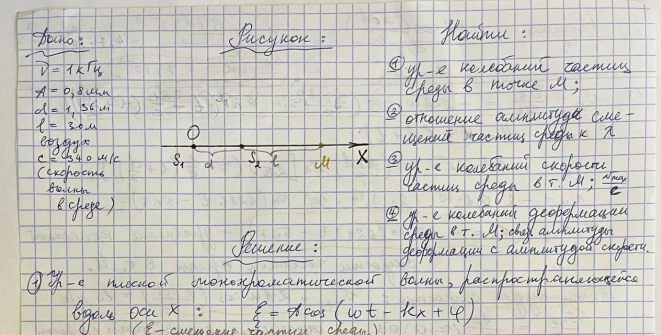 Дано:
ν = 1 кГц
A = 0,8 мм
d = 1,36 м
l = 30 м
воздух
c = 340 м/с
(скорость
волны
в среде)
Рисунок:
O
S1 d S2 l M X
Найти:
① ур-е колебаний частиц
среды в точке M;
② отношение амплитуды сме-
щений частиц среды к λ
③ ур-е колебаний скорости
частиц среды в т. M; υmax/c
④ ур-е колебаний деформации
среды в т. M; связ амплитуды
деформации с амплитудой скорости.
Решение:
① Ур-е плоской монохроматической волны, распространяющейся
вдоль оси X : ξ = A cos (ωt - kx + φ)
(ξ - смещение частиц среды)